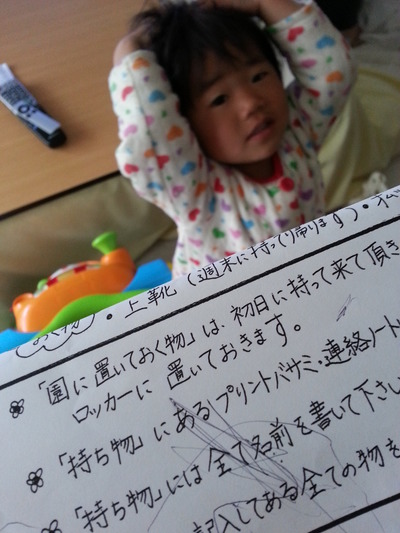 ・上靴（週末に持って帰ります）・
「園に置いておく物」は、初日に持って来て頂き
ロッカーに置いておきます。
「持ち物」にあるプリントバサミ・連絡ノート
「持ち物」には全て名前を書いて下さい
記入してある全ての物を